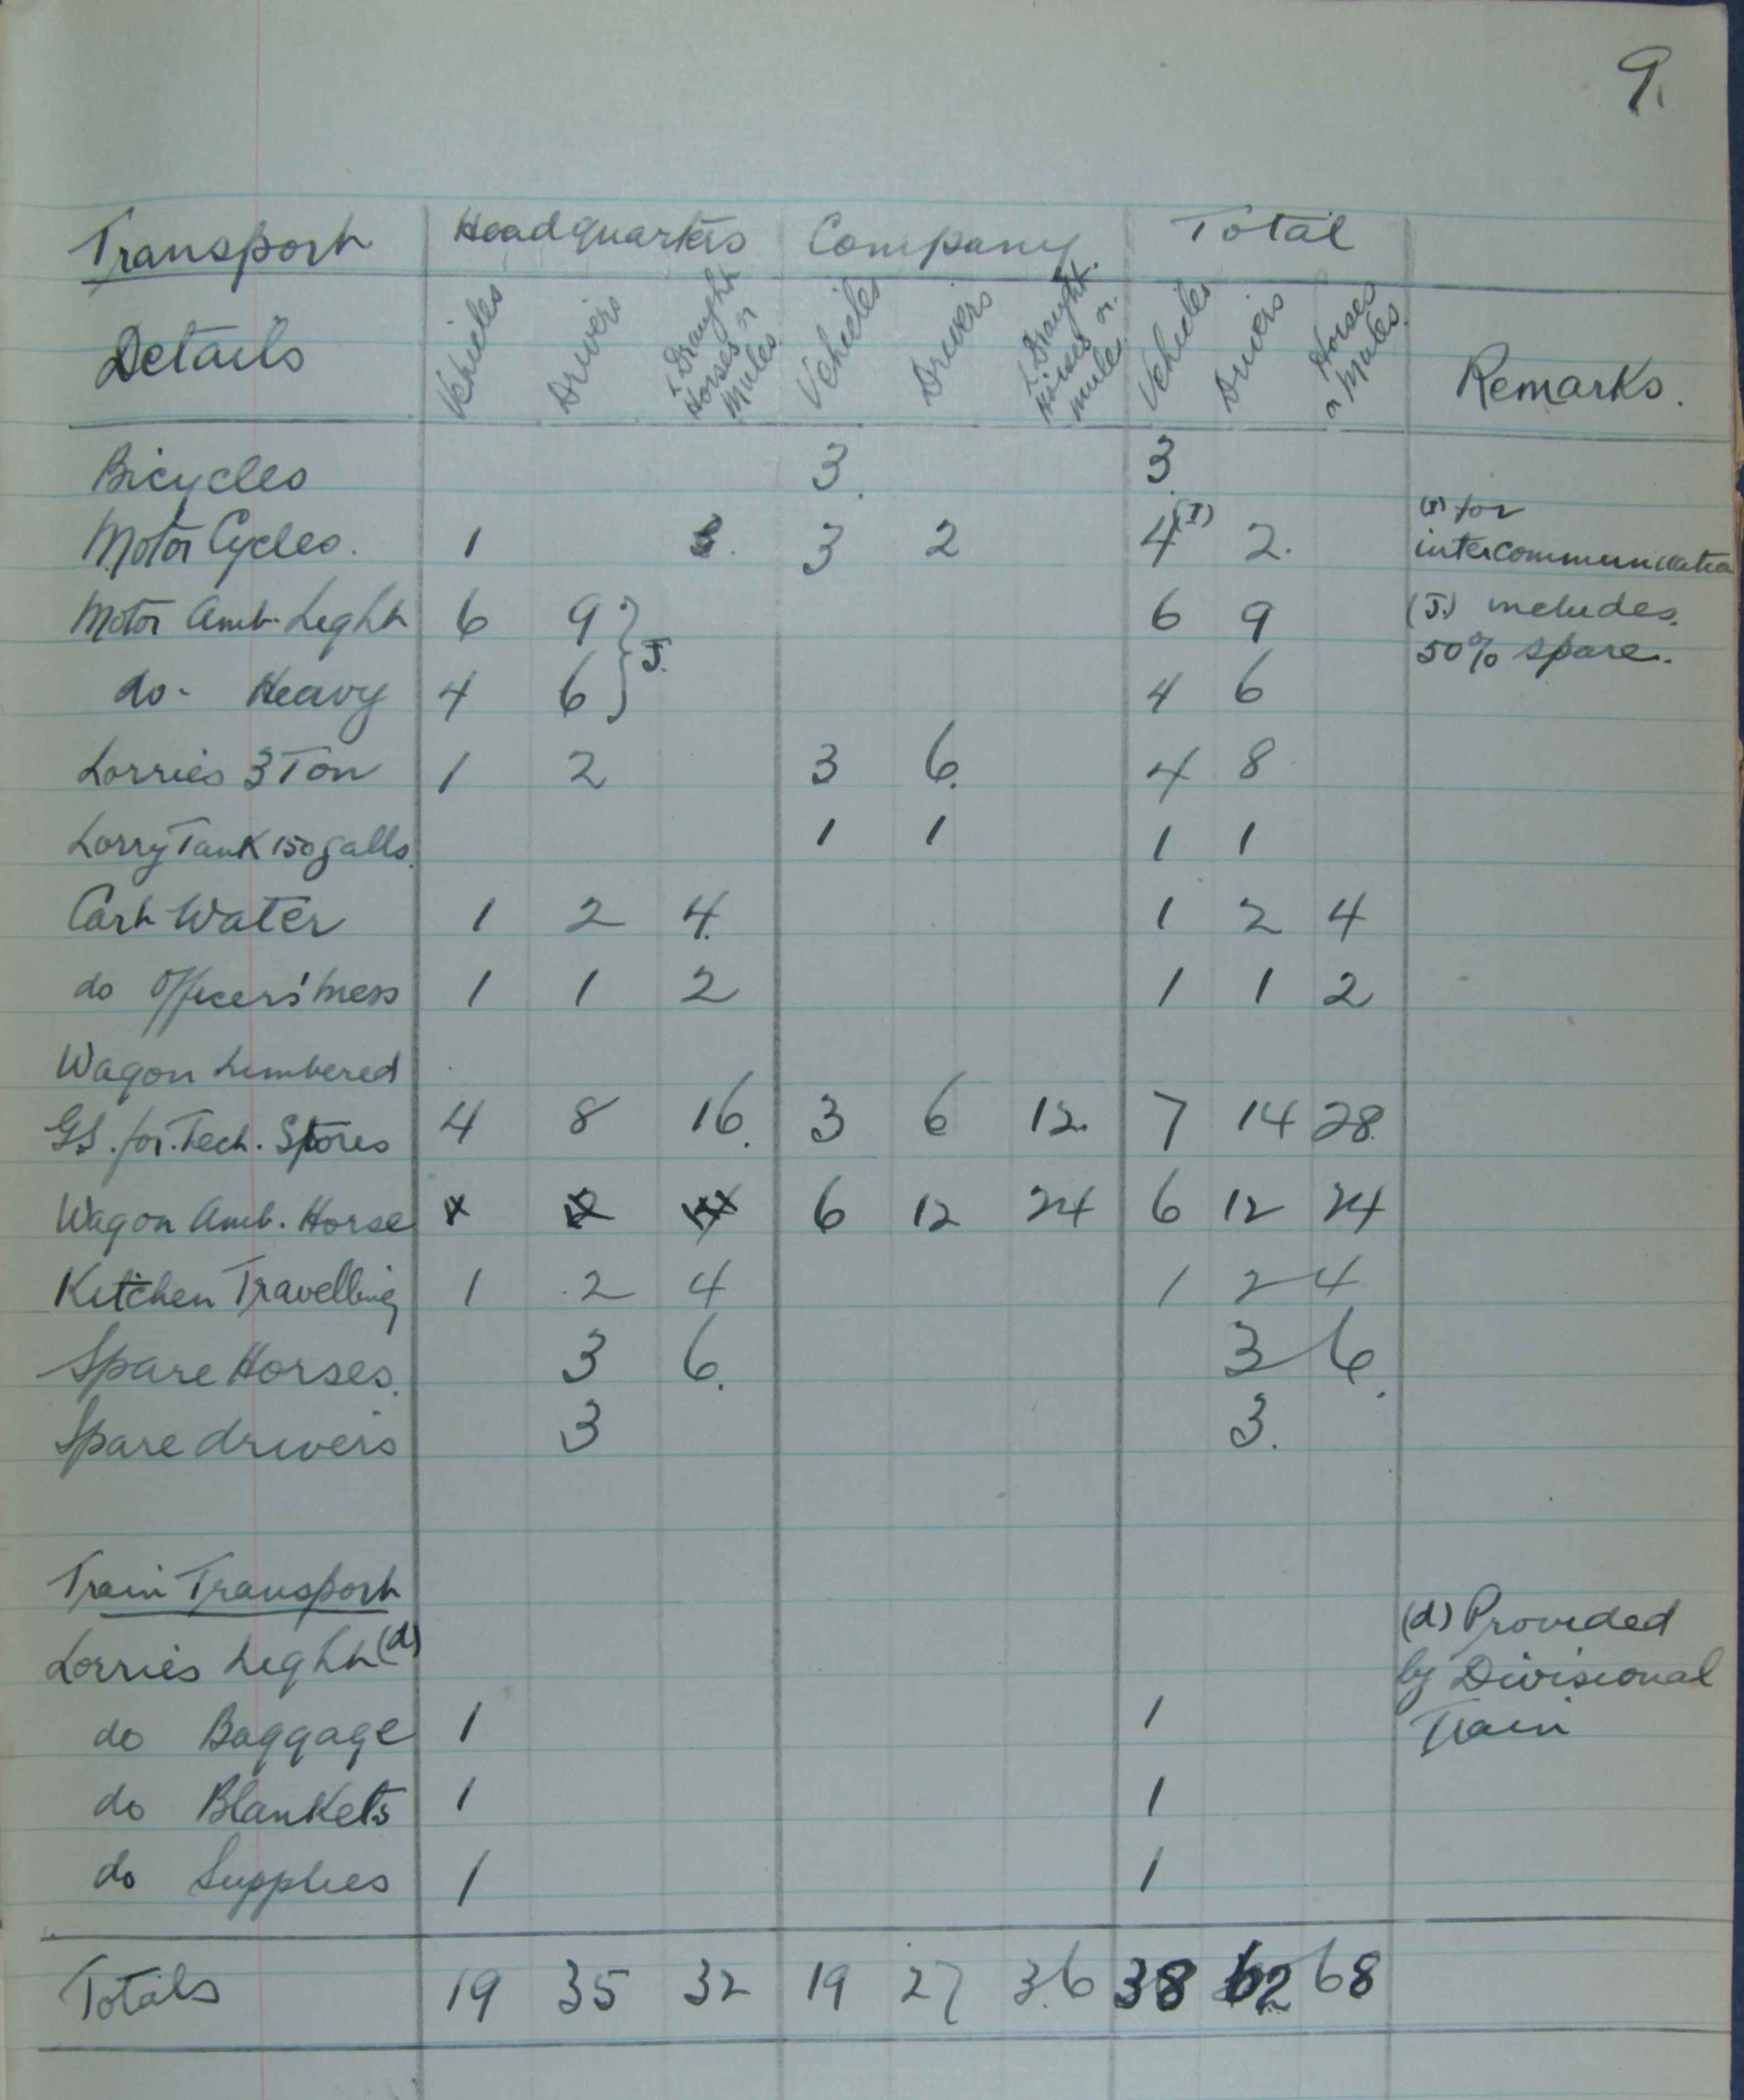 9.
Transport Headquarters Company Total
Details Vehicles Drivers L. Draught Horses or Mules Vehicles Drivers L. Draught Horses or mule Vehicles Drivers Horses or Mules Remarks.
Bicycles 3. 3.
Motor Cycles. 1 3 2 4 (I) 2. (I) for
intercommunication
Motor Amb. Light 6 9 } J. 6 9 (J.) includes
50% spare.
do. Heavy 4 6 4 6
Lorries 3 Ton 1 2 3 6. 4 8
Lorry Tank 150 galls. 1 1 1 1
Cart Water 1 2 4. 1 2 4
do Officers' mess 1 1 2 1 1 2
Wagon Limbered
G.S. for. Tech. Stores 4 8 16. 3 6 12. 7 14 28.
Wagon Amb. Horse 6 12 24 6 12 24
Kitchen Travelling 1 2 4 1 2 4
Spare Horses. 3 6. 3 6.
Spare drivers 3 3.
Train Transport
Lorries Light (d) (d) Provided
by Divisional
do Baggage 1 1 Train
do Blankets 1 1
do Supplies 1 1
Totals 19 35 32 19 27 36 38 62 68